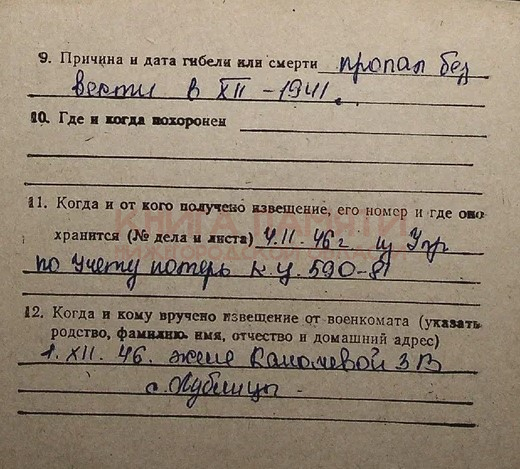 9. Причина и дата гибели или смерти пропал без
вести в XII - 1941 г.
10. Где и когда похоронен
11. Когда и от кого получено извещение, его номер и где оно
КНИГА ПАМЯТИ
хранится (№ дела и листа) 4.11.46 г из Упр
по учету потерь к.у. 590-81
12. Когда и кому вручено извещение от военкомата (указать
родство, фамилию, имя, отчество и домашний адрес)
1.XII.46. жене З В
с.